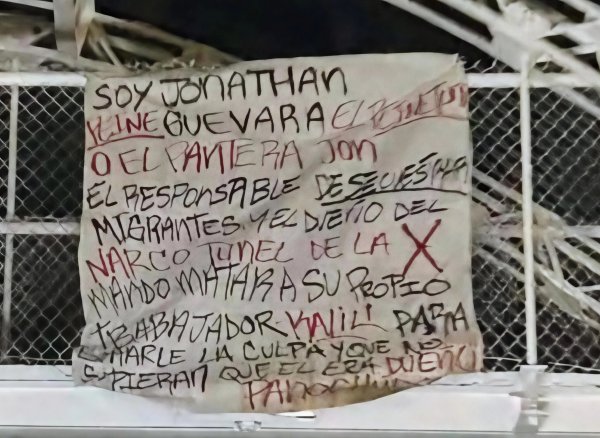 SOY JONATHAN
GUEVARA EL
O EL PANTERA JON
EL RESPONSABLE DE SECUESTRA
MIGRANTES Y EL DIEÑO DEL
NARCO TUNEL DE LA X
MANDO MATAR A SU PROPIO
TRABAJADOR KALIL PARA
LA CULPA Y QUE NO
SUPIERAN QUE EL ERA DUEÑO